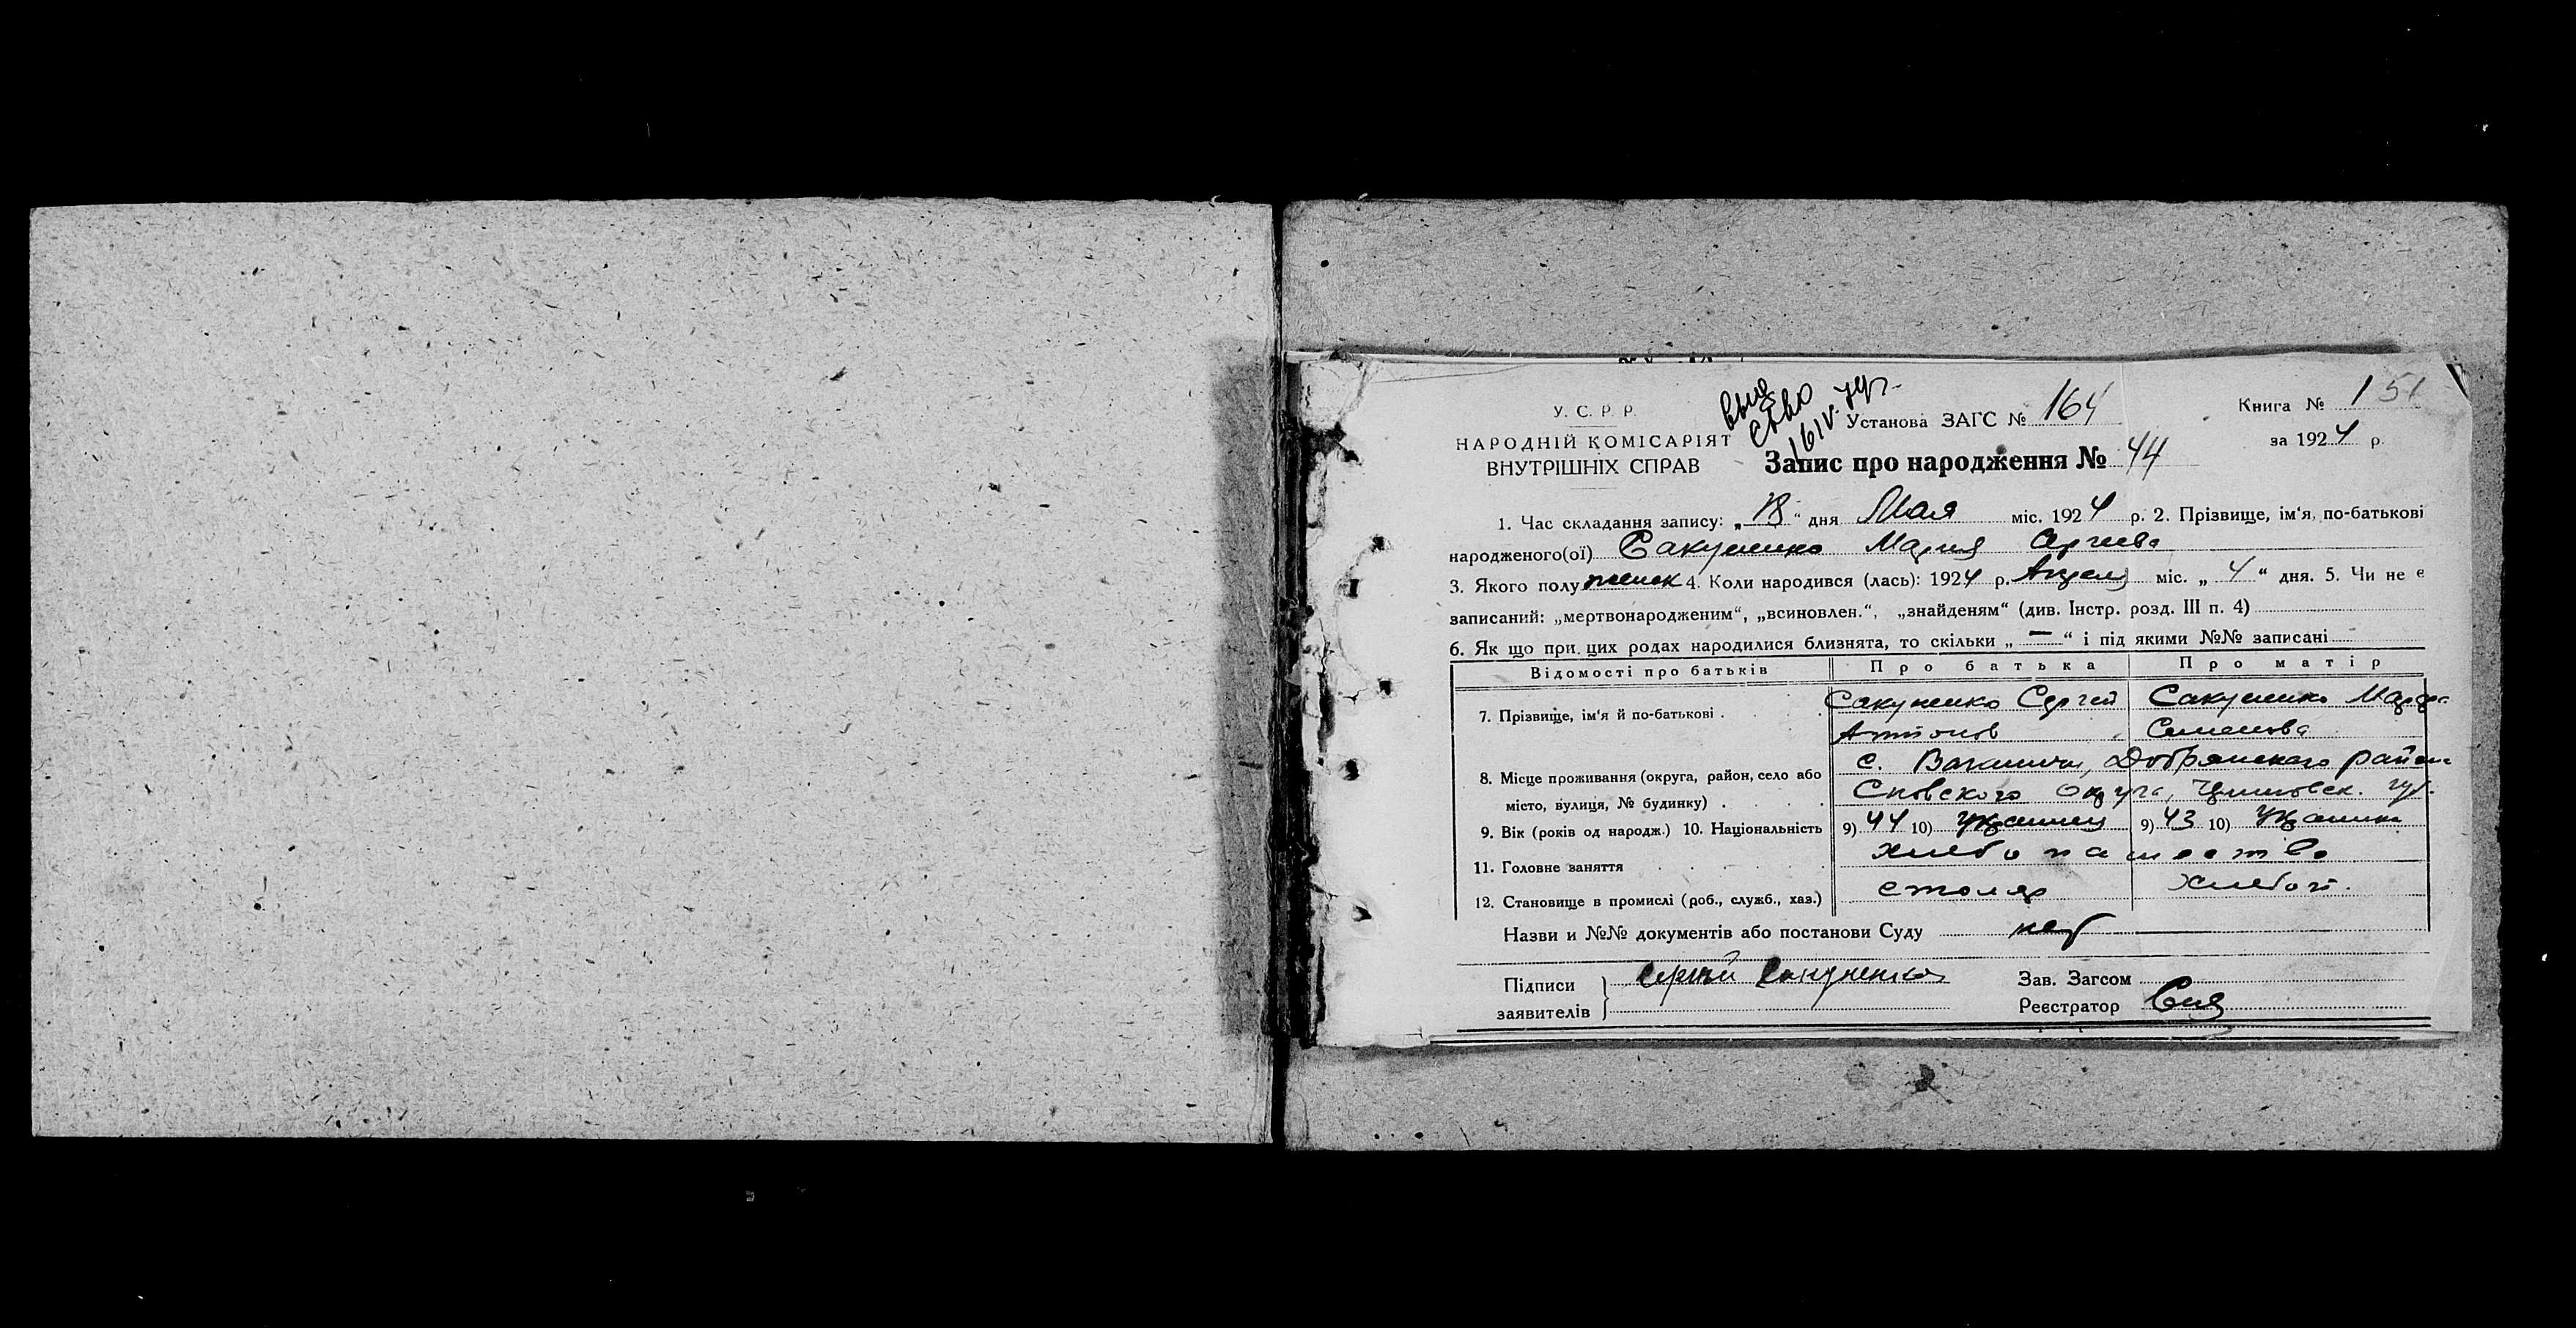 У. С. Р. Р.
НАРОДНІЙ КОМІСАРІЯТ
ВНУТРІШНІХ СПРАВ
Установа ЗАГС № 164
Книга № 151
за 1924 р.
Запис про народження № 44
1. Час складання запису: „18“ дня Мая міс. 1924 р. 2. Прізвище, ім‘я, по-батькові
народженого(ої) Сакуненко Мария Сергеева
3. Якого полу женск 4. Коли народився (лась): 1924 р. Апреля міс. „4“ дня. 5. Чи не є
записаний: „мертвонародженим“, „всиновлен.“, „знайденям“ (див. Інстр. розд. III п. 4)
6. Як що при цих родах народилися близнята, то скільки „—“ і під якими №№ записані
Відомості про батьків Про батька Про матір
7. Прізвище, ім‘я й по-батькові . . Сакуненко Сергей Сакуненко
Антонов Семенова
8. Місце проживання (округа, район, село або с. Добрянского района
місто, вулиця, № будинку) . . Сновского округа,
9. Вік (років од народж.) 10. Національність 9) 44 10) Украинец 9) 43 10)
11. Головне заняття . . . . хлебопашество
12. Становище в промислі (роб., служб., хаз.) столяр хлебоп.
Назви и №№ документів або постанови Суду нет
Підписи Сергей Сакуненко Зав. Загсом
заявителів Реєстратор